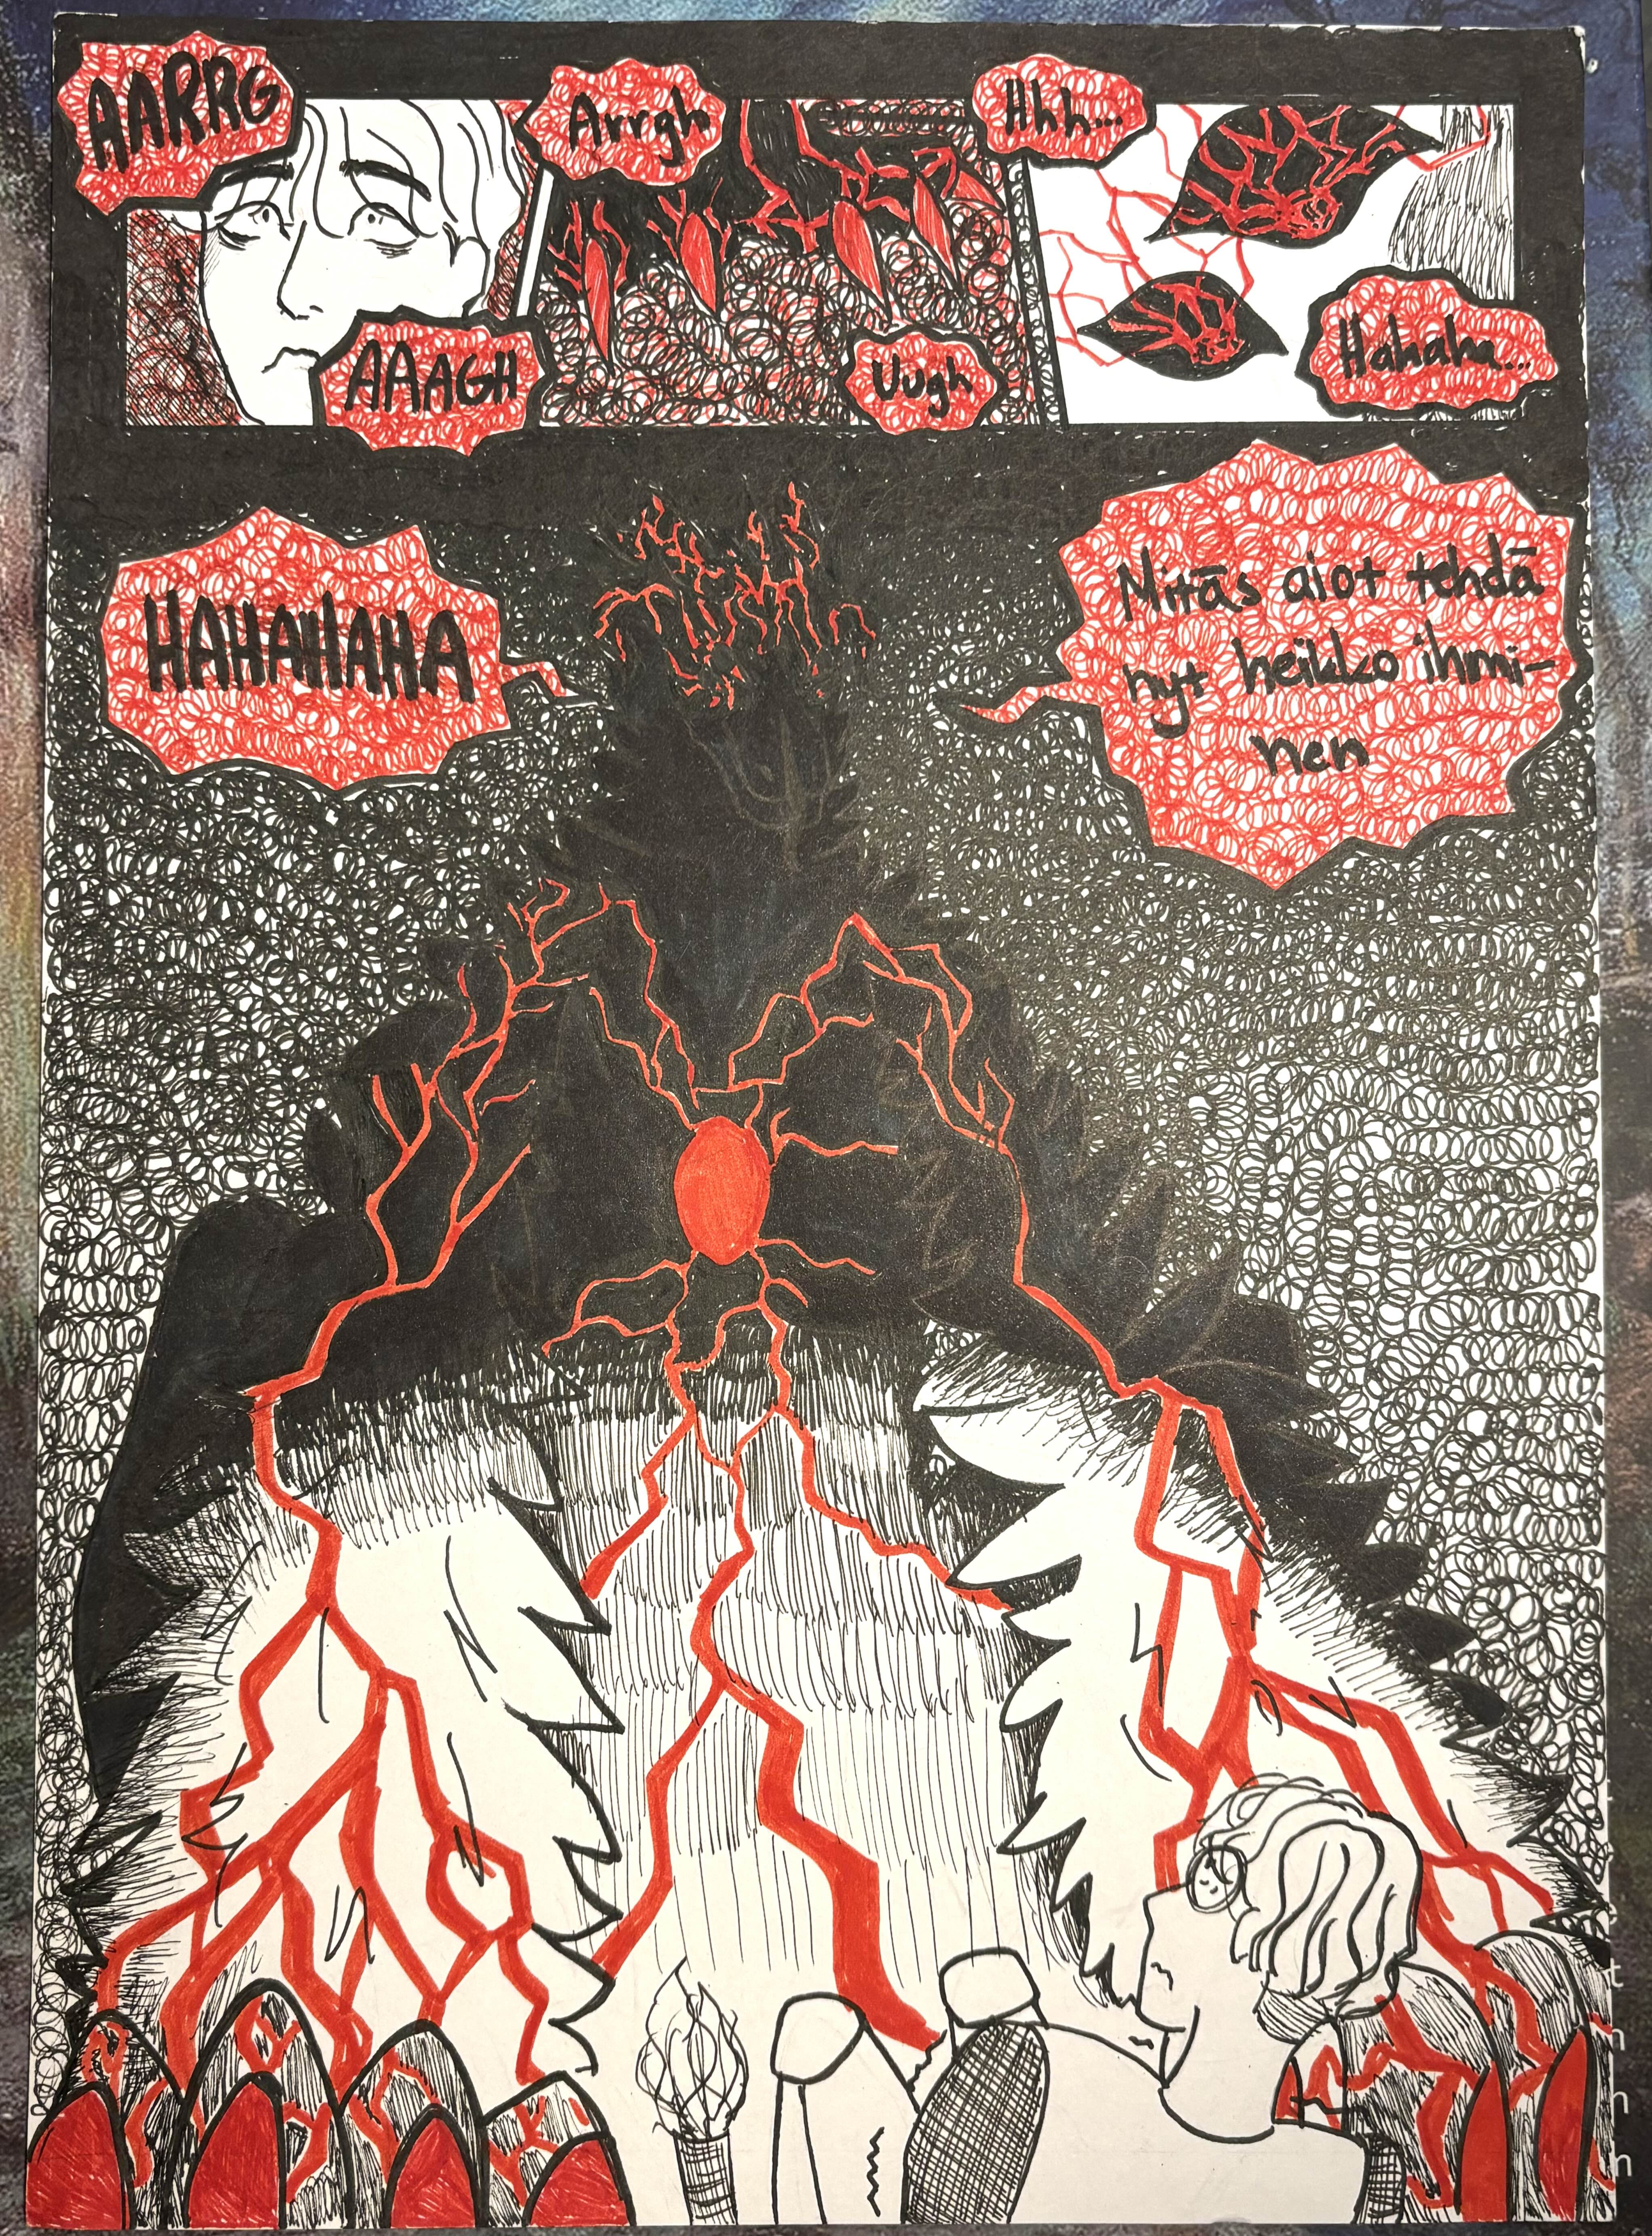 AARRG
AAAGH
Arrgh
Uugh
Hhh...
Hahaha...
HAHAHAHA
Mitäs aiot tehdä
nyt heikko ihmi-
nen